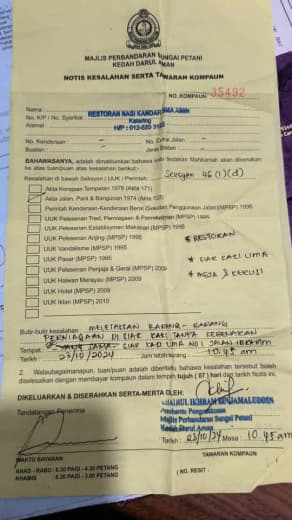 MAJLIS PERBANDARAN SUNGAI PETANI
KEDAH DARUL AMAN
NOTIS KESALAHAN SERTA TAWARAN KOMPAUN
NO. KOMPAUN 35492
Nama : RESTORAN NASI KANDAR
No. K/P / No. Syarikat Katering
Alamat : H/P : 012-
No. Kenderaan : No. Cukai Jalan :
Buatan : Jenis Badan :
BAHAWASANYA, adalah dimaklumkan bahawa tindakan Mahkamah akan dikenakan
ke atas tuan/puan atas kesalahan berikut:-
Kesalahan di bawah Seksyen / UUK / Perintah: Seksyen 46 (1)(d)
Akta Kerajaan Tempatan 1976 (Akta 171)
Akta Jalan, Parit & Bangunan 1974 (Akta 133)
Perintah Kenderaan-Kenderaan Berat (Sekatan Penggunaan Jalan) (MPSP) 1996
UUK Pelesenan Tred, Perniagaan & Perindustrian (MPSP) 1995
UUK Pelesenan Establisymen Makanan (MPSP) 1995
UUK Pelesenan Anjing (MPSP) 1995 * RESTORAN
UUK Vandalisme (MPSP) 1995
UUK Pasar (MPSP) 1995 * SIAR KAKI LIMA
UUK Pelesenan Penjaja & Gerai (MPSP) 2009
UUK Hawan Merayau (MPSP) 2009 * MEJA & KERUSI
UUK Hotel (MPSP) 2009
UUK Iklan (MPSP) 2010
Butir-butir kesalahan : MELETAKKAN BARANG - BARANG
PERNIAGAAN DI SIAR KAKI TANPA KEBENARAN
Tempat : SIAR KAKI LIMA NO 1 JALAN IBRAHIM
Tarikh : 23/10/2024 Jam lebih kurang 10.45 am
2. Walaubagaimanapun, tuan/puan adalah diberitahu bahawa kesalahan tersebut boleh
diselesaikan dengan membayar kompaun dalam tempoh tujuh ( 07 ) hari dari tarikh Notis ini.
DIKELUARKAN & DISERAHKAN SERTA-MERTA OLEH:
Tandatangan Penerima IKHRAM BIN JAMALUDDIN
Pembantu Penguatkuasa
Majlis Perbandaran Sungai Petani
Kedah Darul Aman
Tarikh : 23/10/24 Masa : 10.45 am
WAKTU BAYARAN TAWARAN KOMPAUN
AHAD - RABU : 8.30 PAGI - 4.30 PETANG
KHAMIS : 8.30 PAGI - 3.00 PETANG ( NO. RESIT :